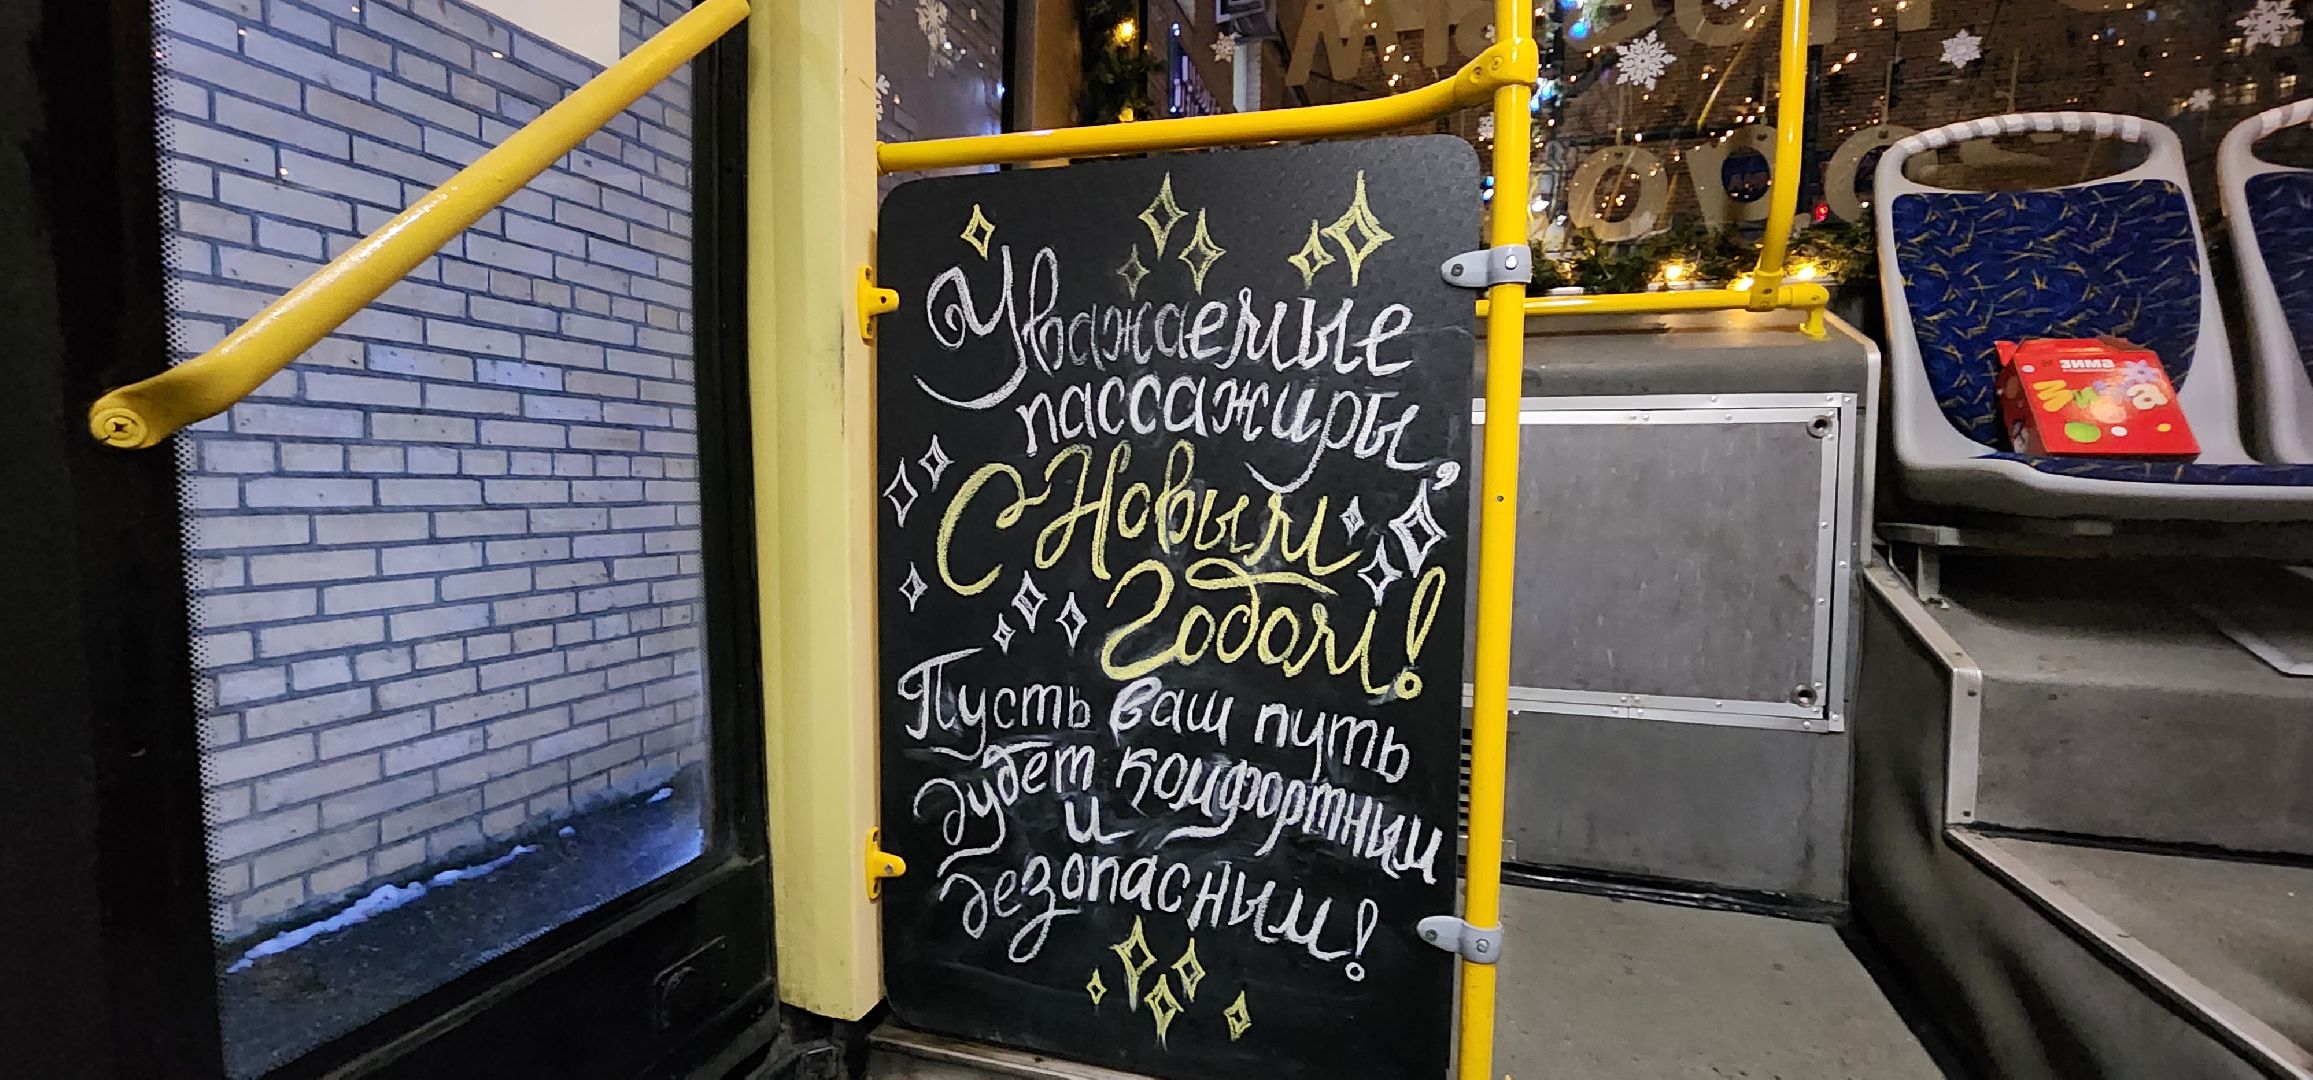 Уважаемые
пассажиры,
С Новым
Годом!
Пусть ваш путь
будет комфортным
и
безопасным!
ЗИМА